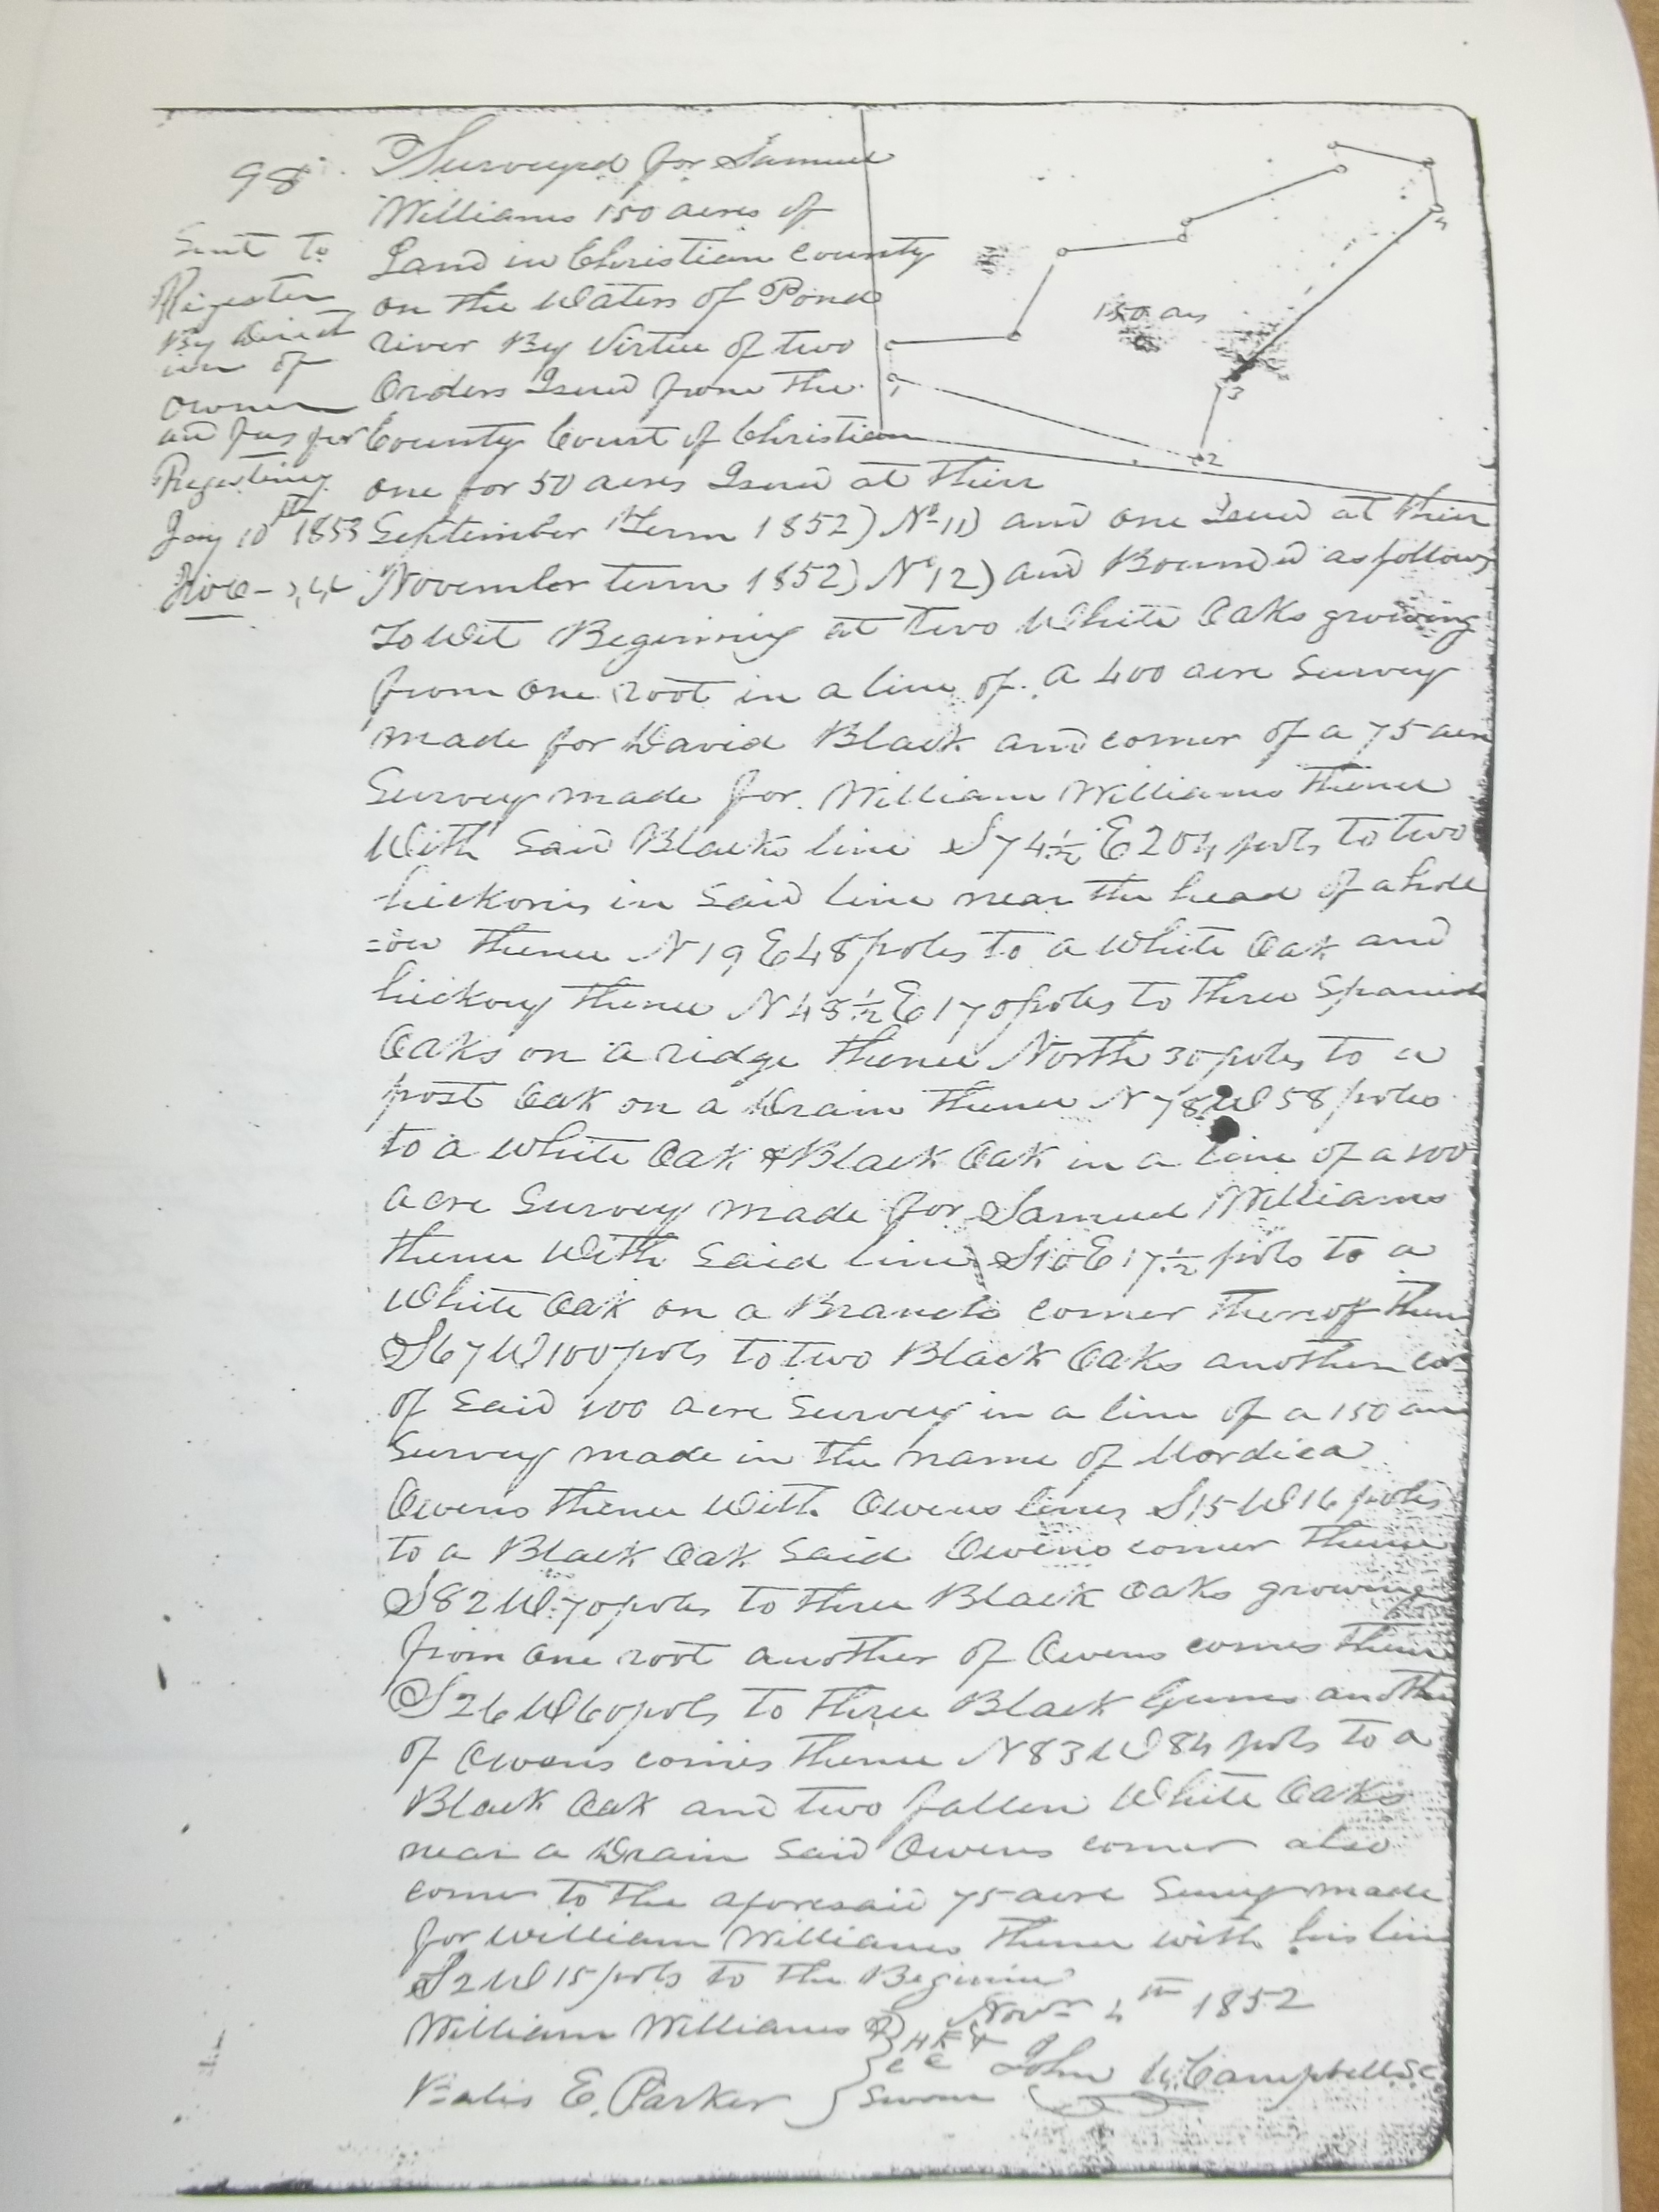 98
Sent to
Register
By Direct
ion of
owner
and fees for
Registering
Jany 10th 1853
Surveyed for Samuel
Williams 150 acres of
Land in Christian County
on the Waters of Pond
river By Virtue of two
Orders Issued from the
County Court of Christian
one for 50 acres Issued at their
September Term 1852) No 11) and one Issued at their
November term 1852) No 12) and Bounded as follows
To Wit Beginning at two White Oaks growing
from one root in a line of a 400 acre Survey
made for David Black and corner of a 75 acre
Survey made for William Williams thence
With Said Blacks line S 74 1/2 E 204 pols to two
hickoris in Said line near the head of a holl
=ow thence N 19 E 48 poles to a White Oak and
hickory thence N 48 1/2 E 170 poles to three Spanish
Oaks on a ridge thence North 30 poles to a
post Oak on a Drain thence N 78 W 58 poles
to a White Oak & Black Oak in a line of a 100
acre Survey made for Samuel Williams
thence With Said line S 10 E 17 1/2 pols to a
White Oak on a Branch corner thereof thence
S 67 W 100 pols to two Black Oaks another cor
of Said 100 acre Survey in a line of a 150 acre
Survey made in the name of Mordica
Owens thence With Owens lines S 15 W 16 poles
to a Black Oak Said Owens corner thence
S 82 W 70 poles to three Black Oaks growing
from one root another of Owens corners thence
S 26 W 60 pols to three Black Gums another
of Owens corners thence N 83 W 84 pols to a
Black Oak and two fallen White Oaks
near a Drain Said Owens corner also
corner to the aforesaid 75 acre Survey made
for William Williams thence with his line
S 2 W 15 pols to the Beginnin
Novr 4th 1852
William Williams
E. Parker
Sworn
John W. Campbell S.C.
150 acs
1
2
3
4